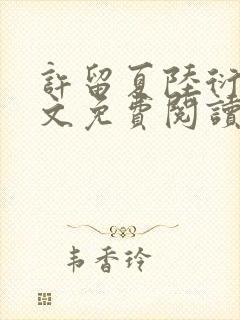 許留夏陸衍
文免費閱讀
韦香玲